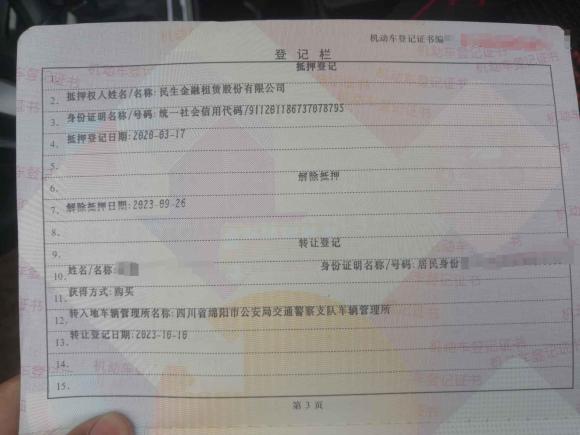 机动车登记证书编
登记栏
抵押登记
1.
2. 抵押权人姓名/名称:民生金融租赁股份有限公司
3. 身份证明名称/号码:统一社会信用代码/911201186737078795
4. 抵押登记日期:2020-03-17
5.
解除抵押
6.
7. 解除抵押日期:2023-09-26
8.
转让登记
9.
10. 姓名/名称: 身份证明名称/号码:居民身份
11. 获得方式:购买
12. 转入地车辆管理所名称:四川省绵阳市公安局交通警察支队车辆管理所
13. 转让登记日期:2023-10-10
14.
15.
第 3 页